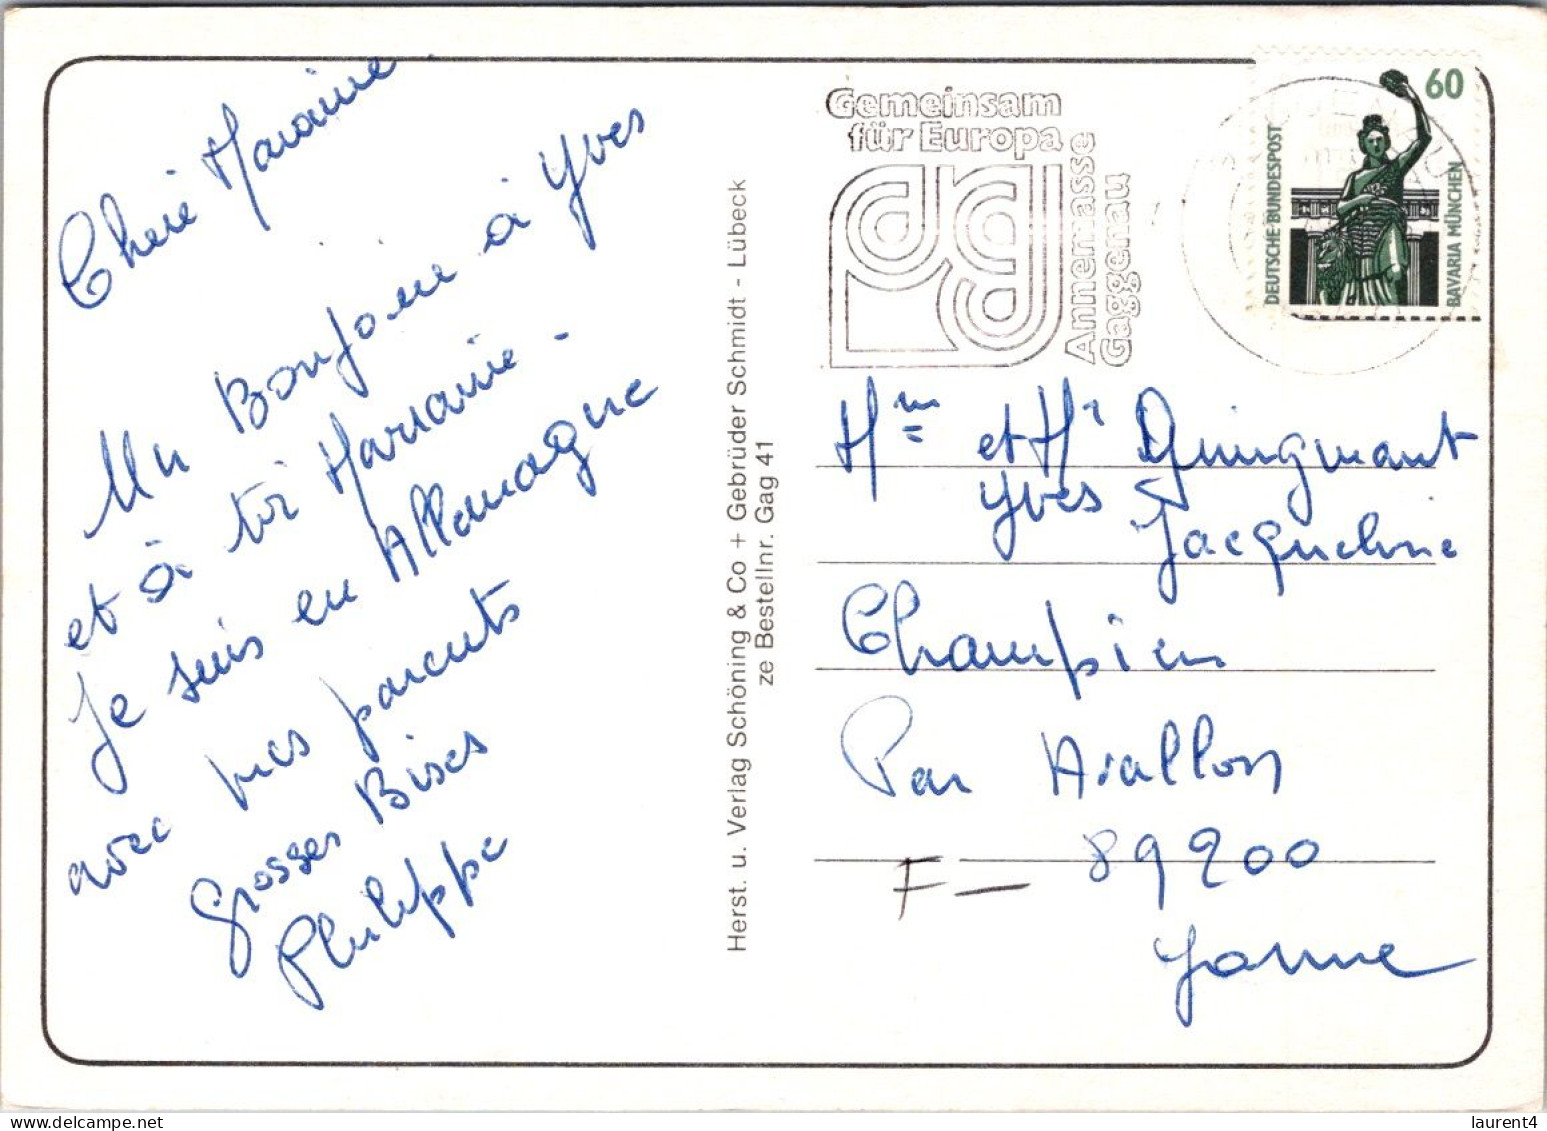 Chérie Marraine
Un Bonjour à Yves
et à toi Marraine -
Je suis en Allemagne
avec mes parents
Grosses Bises
Philippe
Herst. u. Verlag Schöning & Co + Gebrüder Schmidt - Lübeck
ze Bestellnr. Gag 41
Gemeinsam
für Europa
Annemasse
Gaggenau
60
DEUTSCHE BUNDESPOST
BAVARIA MÜNCHEN
Mme et Mr
Yves Jacqueline
Champien
Par Avallon
F — 89200
Yonne
laurent4